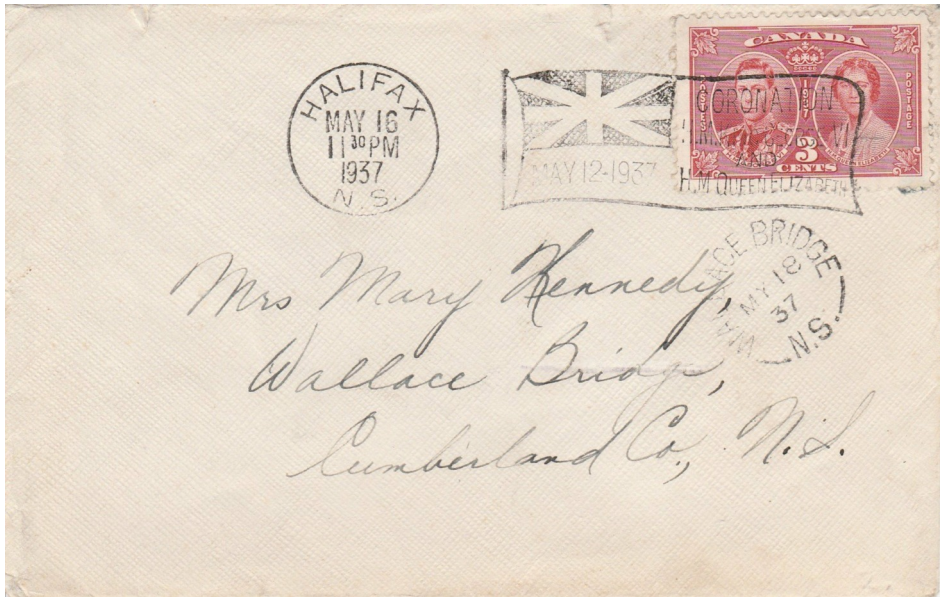 HALIFAX
MAY 16
11 30 PM
1937
N.S.
MAY 12-1937
CORONATION
AND
H.M. QUEEN ELIZABETH
CANADA
POSTES
1937
POSTAGE
3
CENTS
WALLACE BRIDGE
MY 18
37
N.S.
Mrs Mary Kennedy,
Wallace Bridge,
Cumberland Co., N.S.